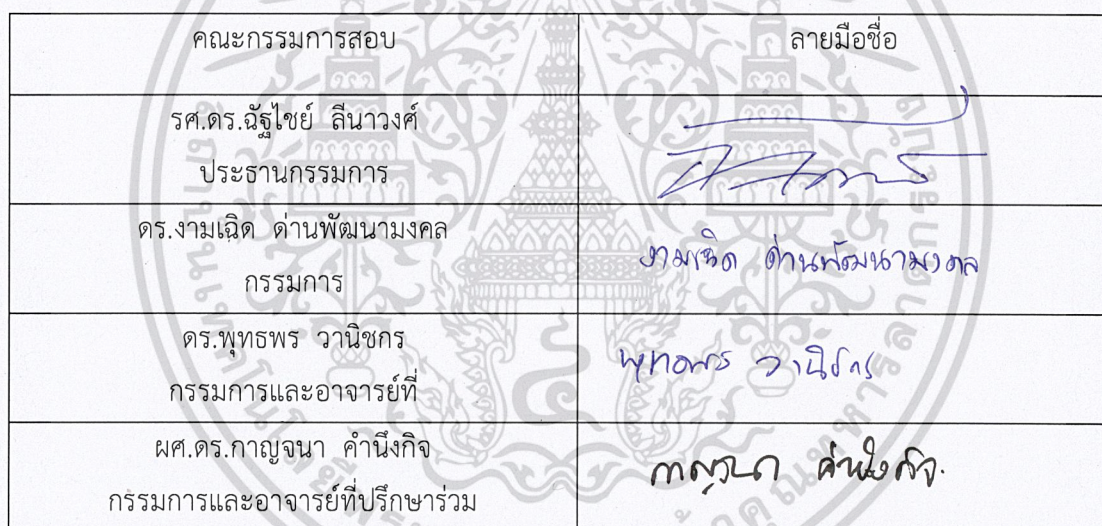 คณะกรรมการสอบ ลายมือชื่อ
รศ.ดร.ฉัฐไชย์ ลีนาวงศ์
ประธานกรรมการ
ดร.งามเฉิด ด่านพัฒนามงคล
กรรมการ
งามเฉิด ด่านพัฒนามงคล
ดร.พุทธพร วานิชกร
กรรมการและอาจารย์ที่
พุทธพร วานิชกร
ผศ.ดร.กาญจนา คำนึงกิจ
กรรมการและอาจารย์ที่ปรึกษาร่วม
กาญจนา คำนึงกิจ.